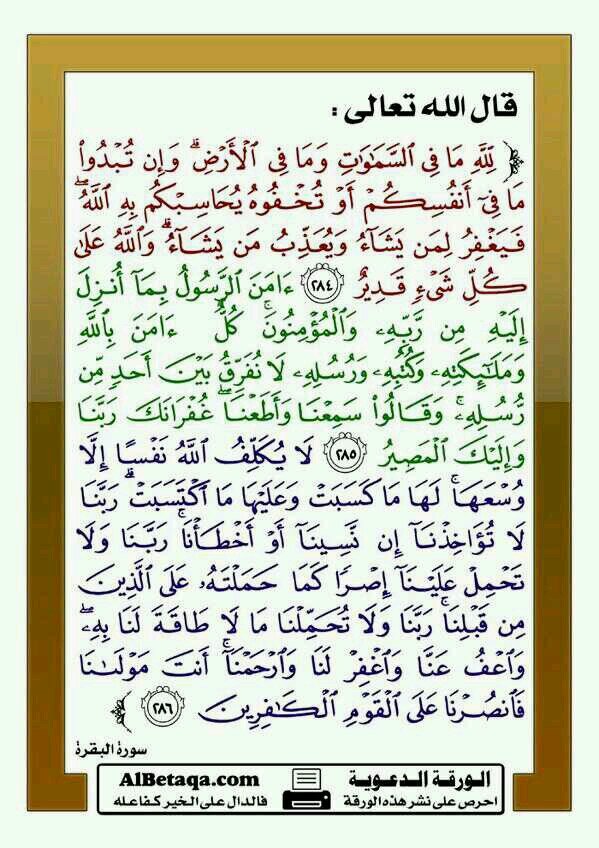 قال الله تعالى :
﴿ لِلَّهِ مَا فِى ٱلسَّمَٰوَٰتِ وَمَا فِى ٱلْأَرْضِ ۗ وَإِن تُبْدُوا۟
مَا فِىٓ أَنفُسِكُمْ أَوْ تُخْفُوهُ يُحَاسِبْكُم بِهِ ٱللَّهُ ۖ
فَيَغْفِرُ لِمَن يَشَآءُ وَيُعَذِّبُ مَن يَشَآءُ ۗ وَٱللَّهُ عَلَىٰ
كُلِّ شَىْءٍ قَدِيرٌ ٢٨٤ ءَامَنَ ٱلرَّسُولُ بِمَآ أُنزِلَ
إِلَيْهِ مِن رَّبِّهِۦ وَٱلْمُؤْمِنُونَ ۚ كُلٌّ ءَامَنَ بِٱللَّهِ
وَمَلَٰٓئِكَتِهِۦ وَكُتُبِهِۦ وَرُسُلِهِۦ لَا نُفَرِّقُ بَيْنَ أَحَدٍ مِّن
رُّسُلِهِۦ ۚ وَقَالُوا۟ سَمِعْنَا وَأَطَعْنَا ۖ غُفْرَانَكَ رَبَّنَا
وَإِلَيْكَ ٱلْمَصِيرُ ٢٨٥ لَا يُكَلِّفُ ٱللَّهُ نَفْسًا إِلَّا
وُسْعَهَا ۚ لَهَا مَا كَسَبَتْ وَعَلَيْهَا مَا ٱكْتَسَبَتْ ۗ رَبَّنَا
لَا تُؤَاخِذْنَآ إِن نَّسِينَآ أَوْ أَخْطَأْنَا ۚ رَبَّنَا وَلَا
تَحْمِلْ عَلَيْنَآ إِصْرًا كَمَا حَمَلْتَهُۥ عَلَى ٱلَّذِينَ
مِن قَبْلِنَا ۚ رَبَّنَا وَلَا تُحَمِّلْنَا مَا لَا طَاقَةَ لَنَا بِهِۦ ۖ
وَٱعْفُ عَنَّا وَٱغْفِرْ لَنَا وَٱرْحَمْنَآ ۚ أَنتَ مَوْلَىٰنَا
فَٱنصُرْنَا عَلَى ٱلْقَوْمِ ٱلْكَٰفِرِينَ ٢٨٦ ﴾
سورة البقرة
الورقة الدعوية
احرص على نشر هذه الورقة
AlBetaqa.com
فالدال على الخير كفاعله